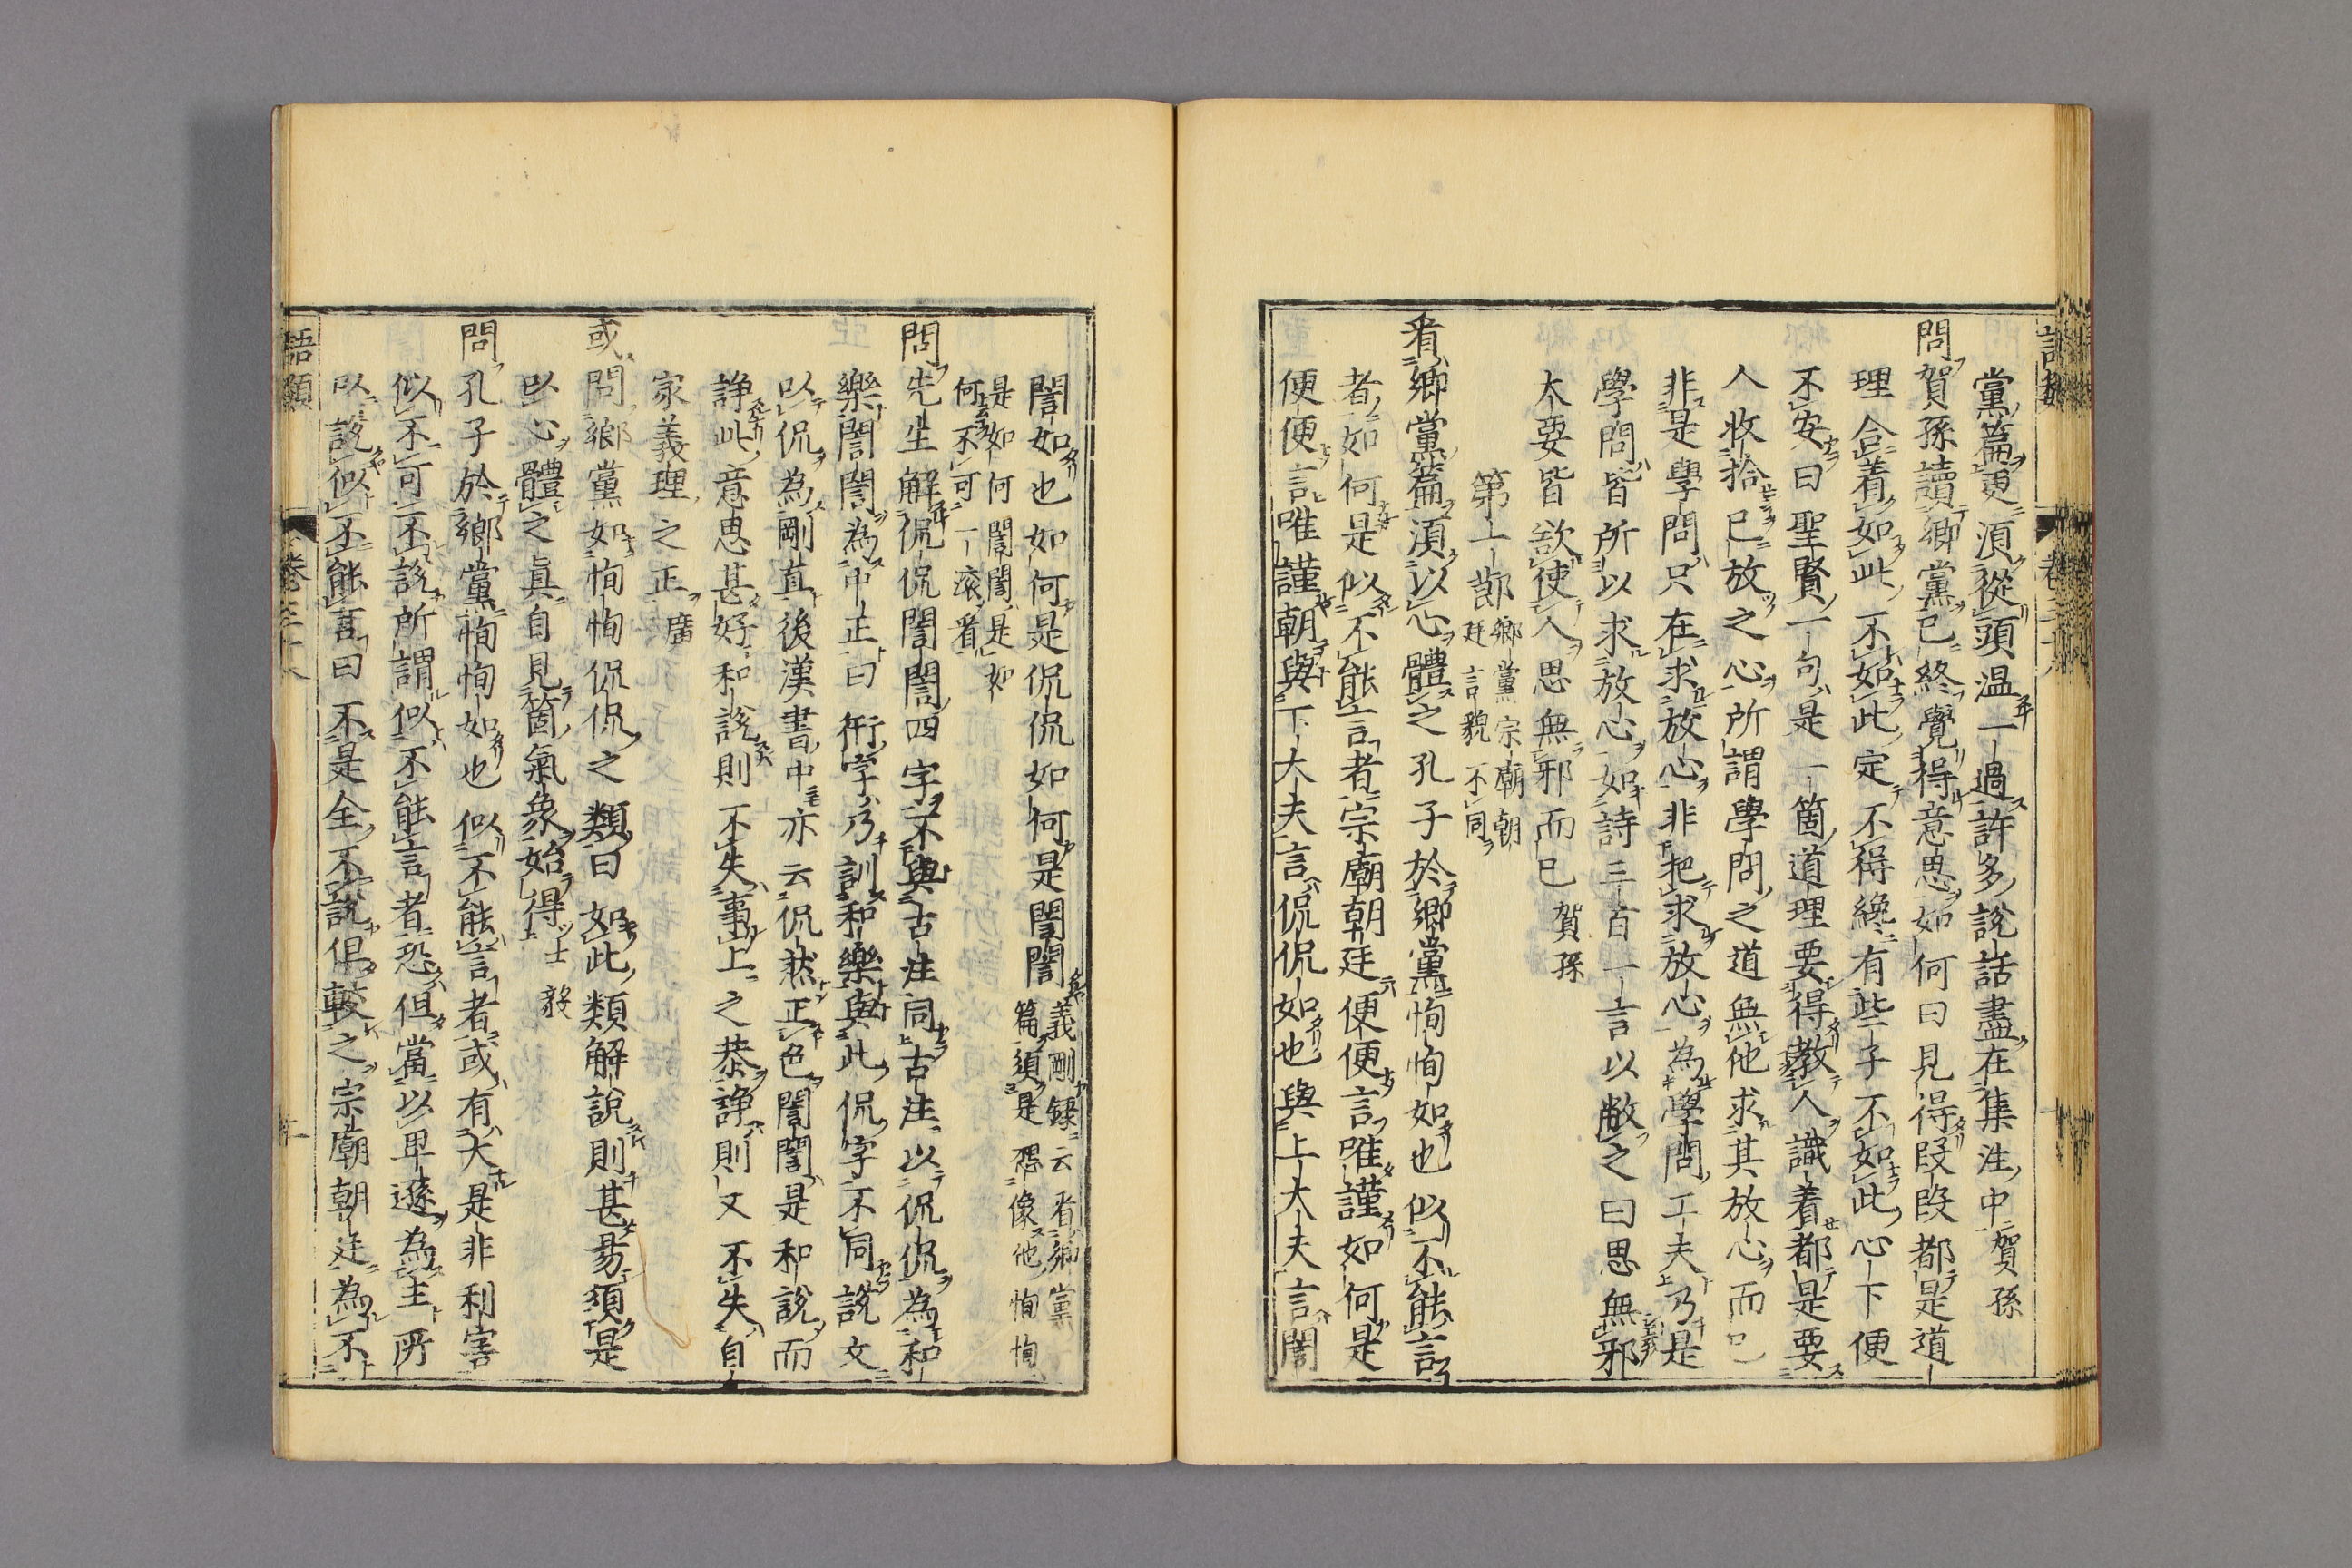 黨篇更須從頭温一過許多說話盡在集注中賀孫
問賀孫讀鄉黨已終覺得意思如何曰見得段段都是道
理合着如此不如此定不得纔有些子不如此心下便
不安曰聖賢一句是一箇道理要得教人識着都是要
人收拾已放之心所謂學問之道無他求其放心而已
非是學問只在求放心非把求放心為學問工夫乃是
學問皆所以求放心如詩三百一言以蔽之曰思無邪
太要皆欲使人思無邪而已賀孫
第一節鄉黨宗廟朝
廷言貌不同
看鄉黨篇須以心體之孔子於鄉黨恂恂如也似不能言
者如何是似不能言者宗廟朝廷便便言唯謹如何是
便便言唯謹朝與下大夫言侃侃如也與上大夫言誾
誾如也如何是侃侃如何是誾誾義剛錄云看鄉黨
篇須是想像他恂恂
是如何誾誾是如
何不可一滚看
問先生解侃侃誾誾四字不與古注同古注以侃侃為和
樂誾誾為中正曰衎字乃訓和樂與此侃字不同說文
以侃為剛直後漢書中亦云侃然正色誾誾是和說而
諍此意思甚好和說則不失事上之恭諍則又不失自
家義理之正廣
或問鄉黨如恂恂侃侃之類曰如此類解說則甚易須是
以心體之真自見箇氣象始得士毅
問孔子於鄉黨恂恂如也似不能言者或有大是非利害
似不可不說所謂似不能言者恐但當以卑遜為主所
以說似不能言曰不是全不說但較之宗廟朝廷為不
語類
卷三十八